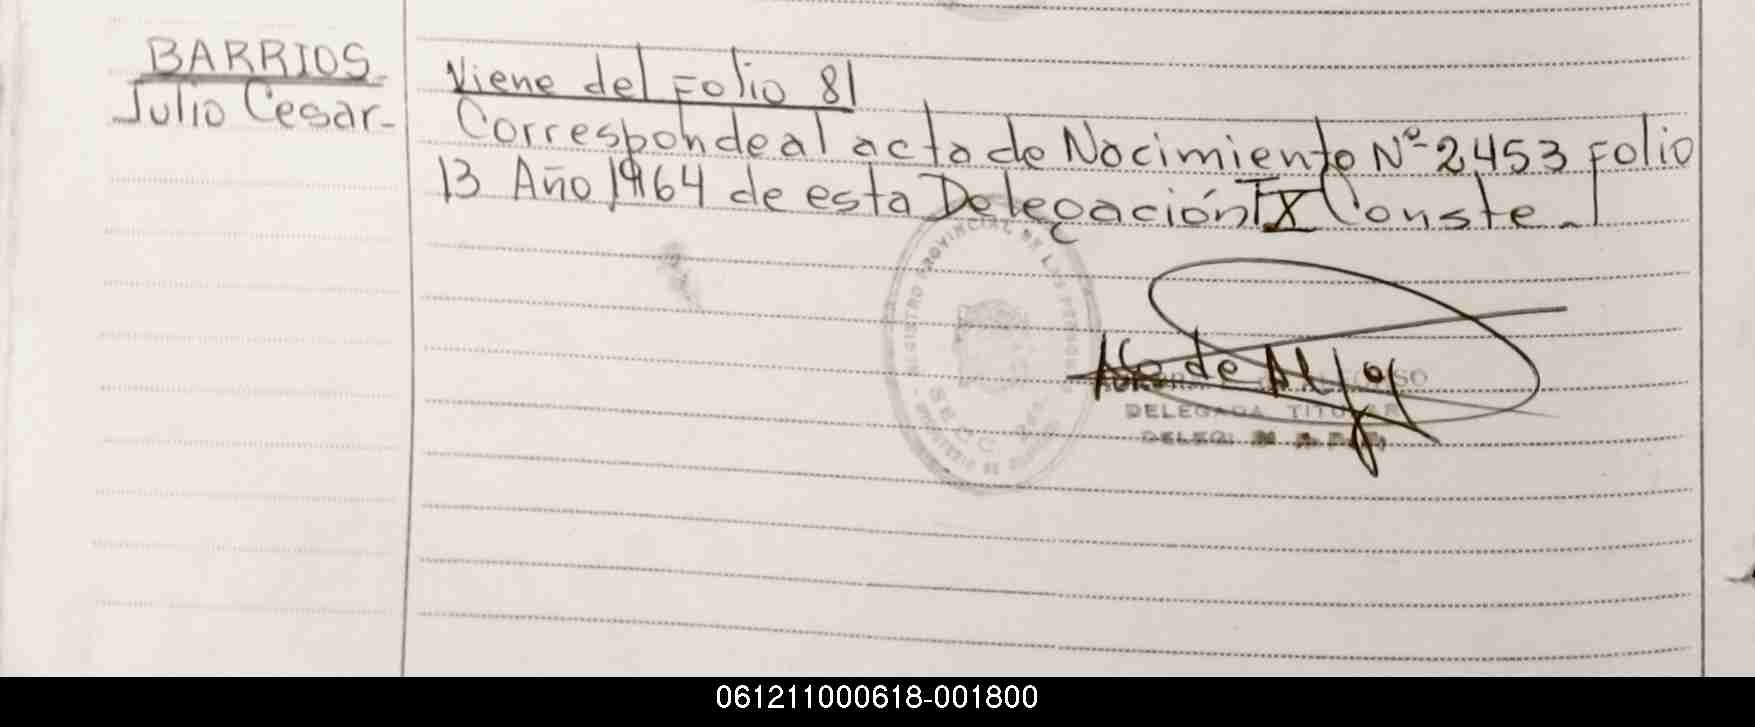 BARRIOS
Julio Cesar-
Viene del Folio 81
Corresponde al acta de Nacimiento Nº 2453 Folio
13 Año 1964 de esta Delegación IX Conste.
REGISTRO PROVINCIAL DE LAS PERSONAS
DELEGADA TITULAR
061211000618-001800